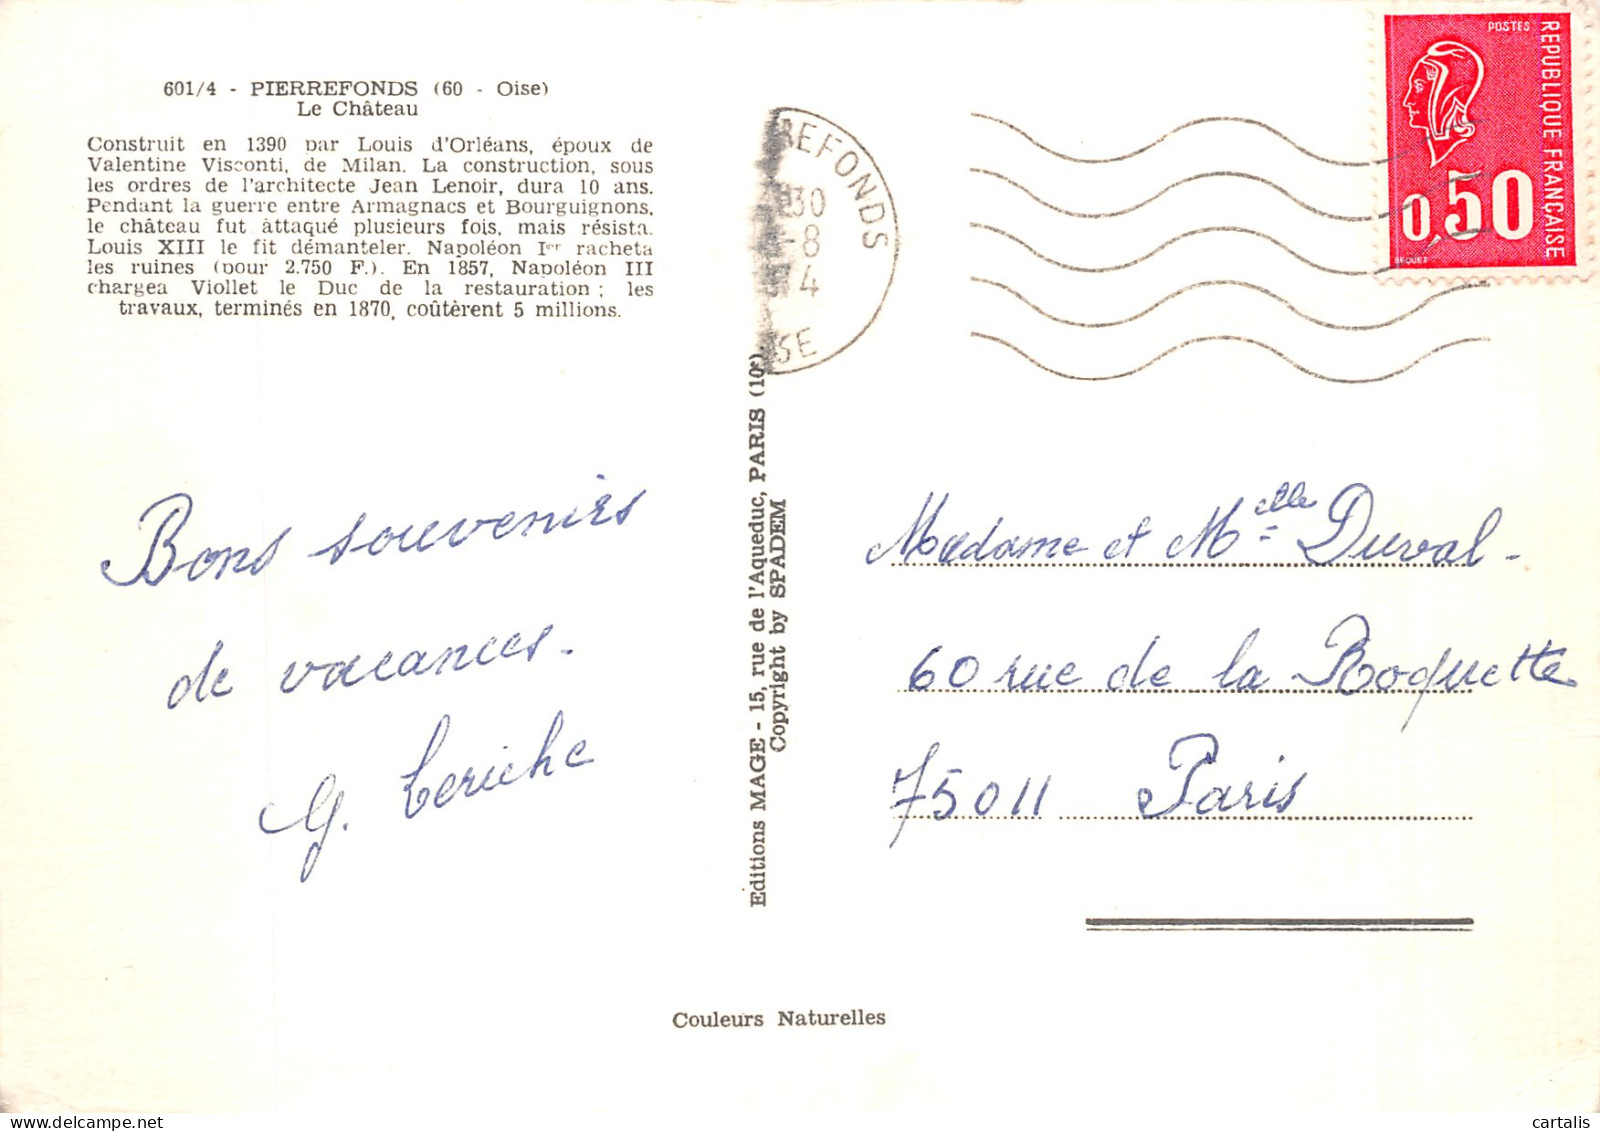 601/4 - PIERREFONDS (60 - Oise)
Le Château
Construit en 1390 par Louis d'Orléans, époux de
Valentine Visconti, de Milan. La construction, sous
les ordres de l'architecte Jean Lenoir, dura 10 ans.
Pendant la guerre entre Armagnacs et Bourguignons,
le château fut âttaqué plusieurs fois, mais résista.
Louis XIII le fit démanteler. Napoléon Ier racheta
les ruines (pour 2.750 F.). En 1857, Napoléon III
chargea Viollet le Duc de la restauration ; les
travaux, terminés en 1870, coûtèrent 5 millions.
Bons souvenirs
de vacances.
G.
Editions MAGE - 15, rue de l'Aqueduc, PARIS (10e).
Copyright by SPADEM
REFONDS
30
-8
74
SE
POSTES
REPUBLIQUE FRANÇAISE
0,50
BEQUET
Madame et Melle Duval -
60 rue de la Roquette
75011 Paris
Couleurs Naturelles
cartalis